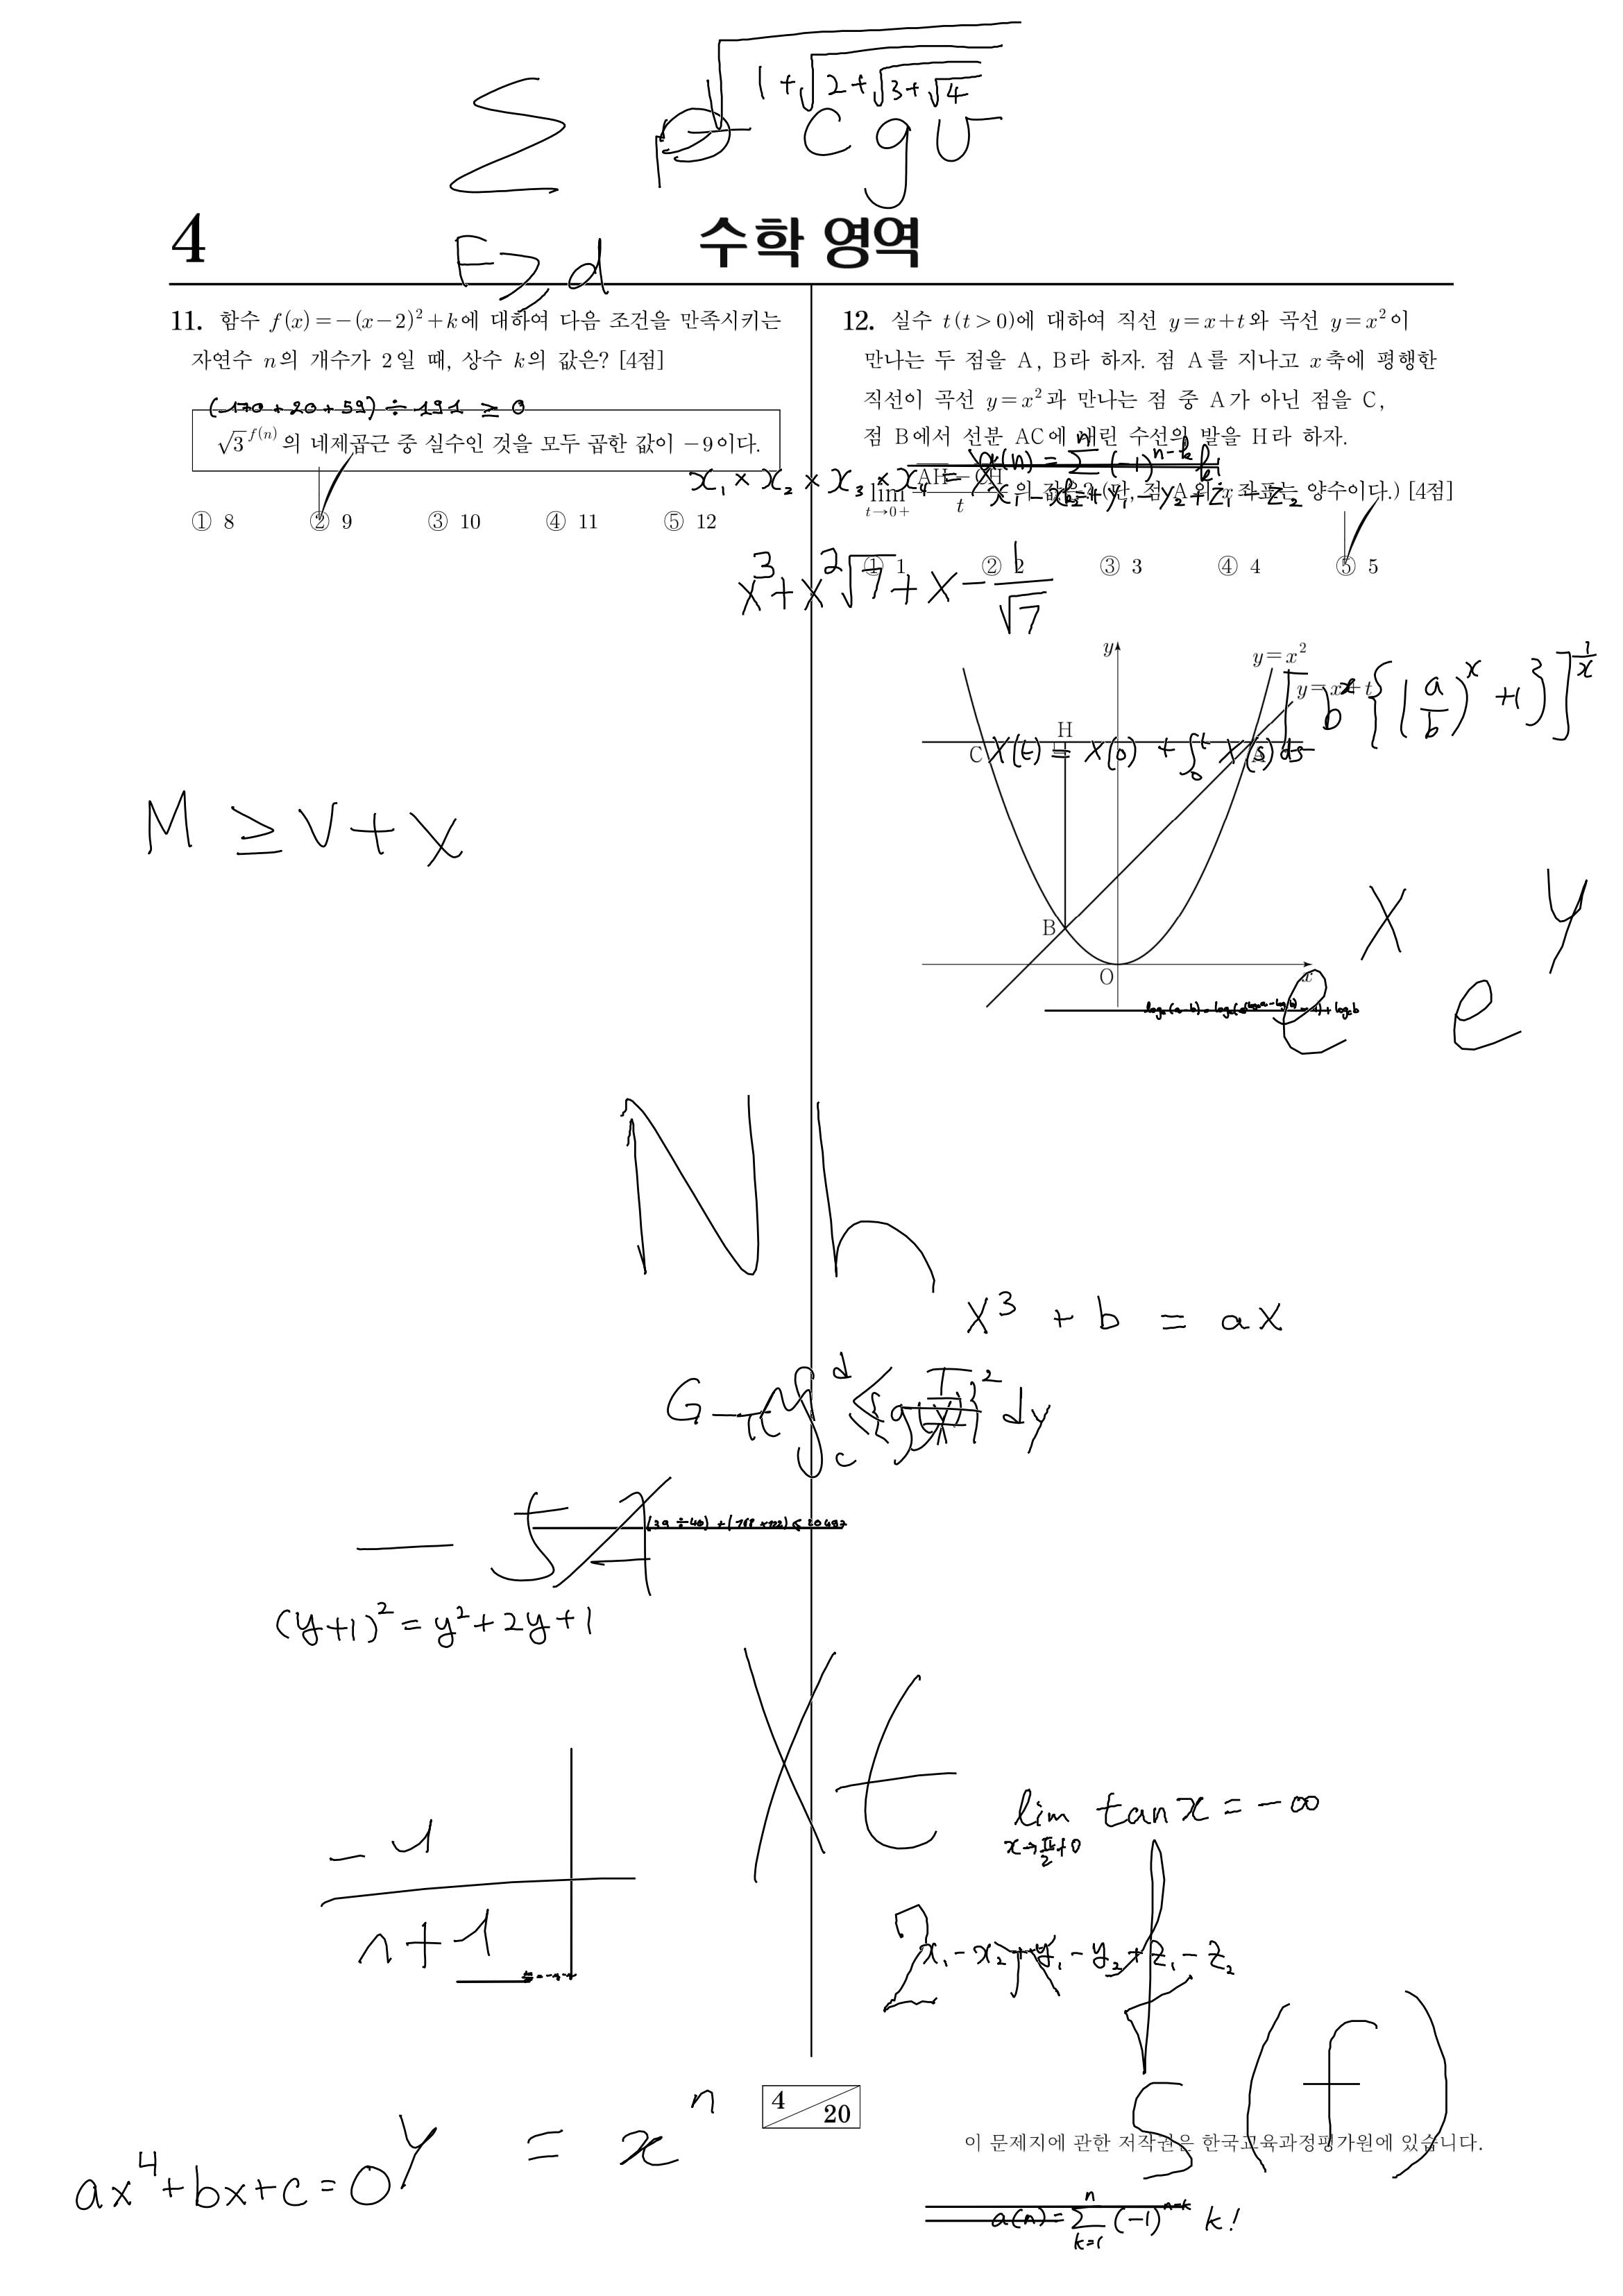 1+√2+√3+√4
∑ c g v
4
수학 영역
F ≥ d
11. 함수 f(x)=-(x-2)²+k에 대하여 다음 조건을 만족시키는
자연수 n의 개수가 2일 때, 상수 k의 값은? [4점]
(-170+20+59)÷191≥0
√3^f(n)의 네제곱근 중 실수인 것을 모두 곱한 값이 -9이다.
① 8 ② 9 ③ 10 ④ 11 ⑤ 12
12. 실수 t(t>0)에 대하여 직선 y=x+t와 곡선 y=x²이
만나는 두 점을 A, B라 하자. 점 A를 지나고 x축에 평행한
직선이 곡선 y=x²과 만나는 점 중 A가 아닌 점을 C,
점 B에서 선분 AC에 내린 수선의 발을 H라 하자.
a(n)=∑(-1)^(n-k)
x₁×x₂×x₃×x₄=X
lim t→0+ (AH-CH)/t 의 값은? (단, 점 A의 x좌표는 양수이다.) [4점]
x₁-x₂+y₁-y₂+z₁-z₂
① 1 ② 2 ③ 3 ④ 4 ⑤ 5
x³+x²√7+x-1/√7
y
y=x²
y=x+t
[b^x{(a/b)^x+1}]^(1/x)
H
C
X(t)=X(0)+∫₀^t X(s)ds
M ≥ V+X
B
O
x
e^x e^y
N h
x³+b=ax
G
π∫_c^d {g(y)}² dy
(39÷40)+(788×112)≤20487
(y+1)²=y²+2y+1
X t
lim x→π/2+0 tan x=-∞
-1/(n+1)
x₁-x₂+y₁-y₂+z₁-z₂
S(f)
4 20
이 문제지에 관한 저작권은 한국교육과정평가원에 있습니다.
y=x^n
ax⁴+bx+c=0
a(n)=∑_(k=1)^n (-1)^(n-k) k!